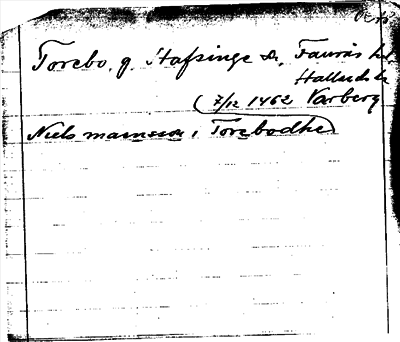 Torebo. g. Stafsinge sn, Faurås hd
Hallands l
(7/12 1462 Varberg
Niels i Torebodhe)